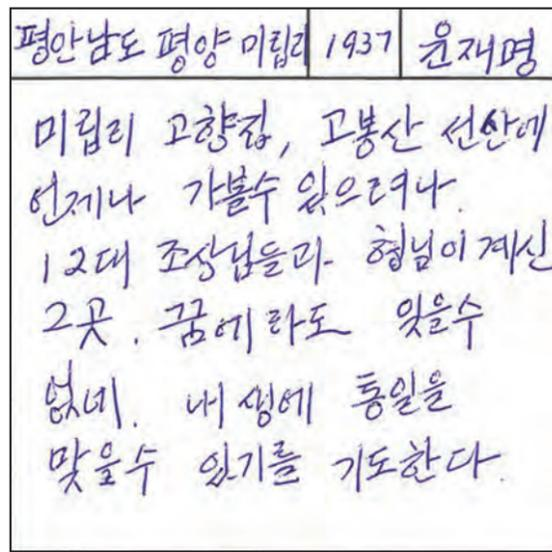 평안남도 평양 미림리 1937 윤재명
미림리 고향집, 고봉산 선산에
언제나 가볼수 있으려나.
12대 조상님들과 형님이 계신
그곳. 꿈에라도 잊을수
없네. 내 생에 통일을
맞을수 있기를 기도한다.